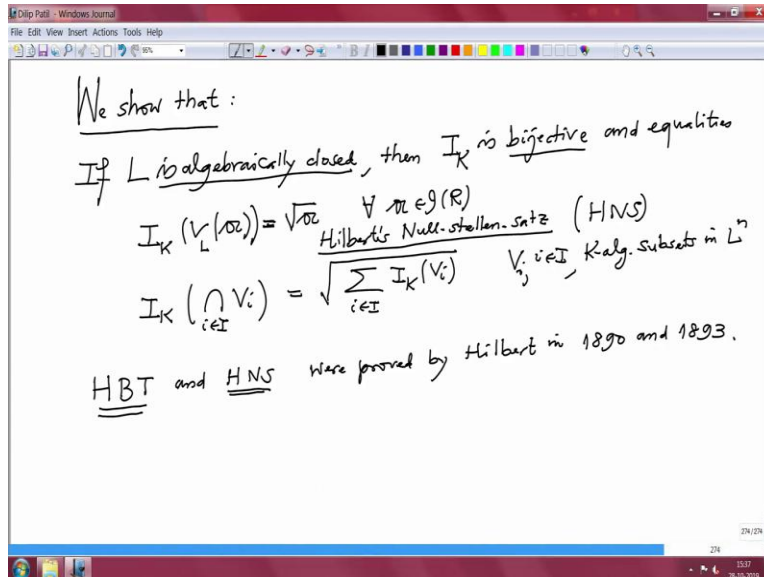 Dilip Patil - Windows Journal
File Edit View Insert Actions Tools Help
95%
B I
We show that :
If L is algebraically closed, then I_K is bijective and equalities
I_K (V_L(𝔞)) = √𝔞 ∀ 𝔞 ∈ 𝓘(R)
Hilbert's Null-stellen-satz (HNS)
I_K (⋂_{i∈I} V_i) = √(∑_{i∈I} I_K(V_i)) V_i, i∈I, K-alg. subsets in L^n
HBT and HNS were proved by Hilbert in 1890 and 1893.
274/274
274
15:37
28-10-2019